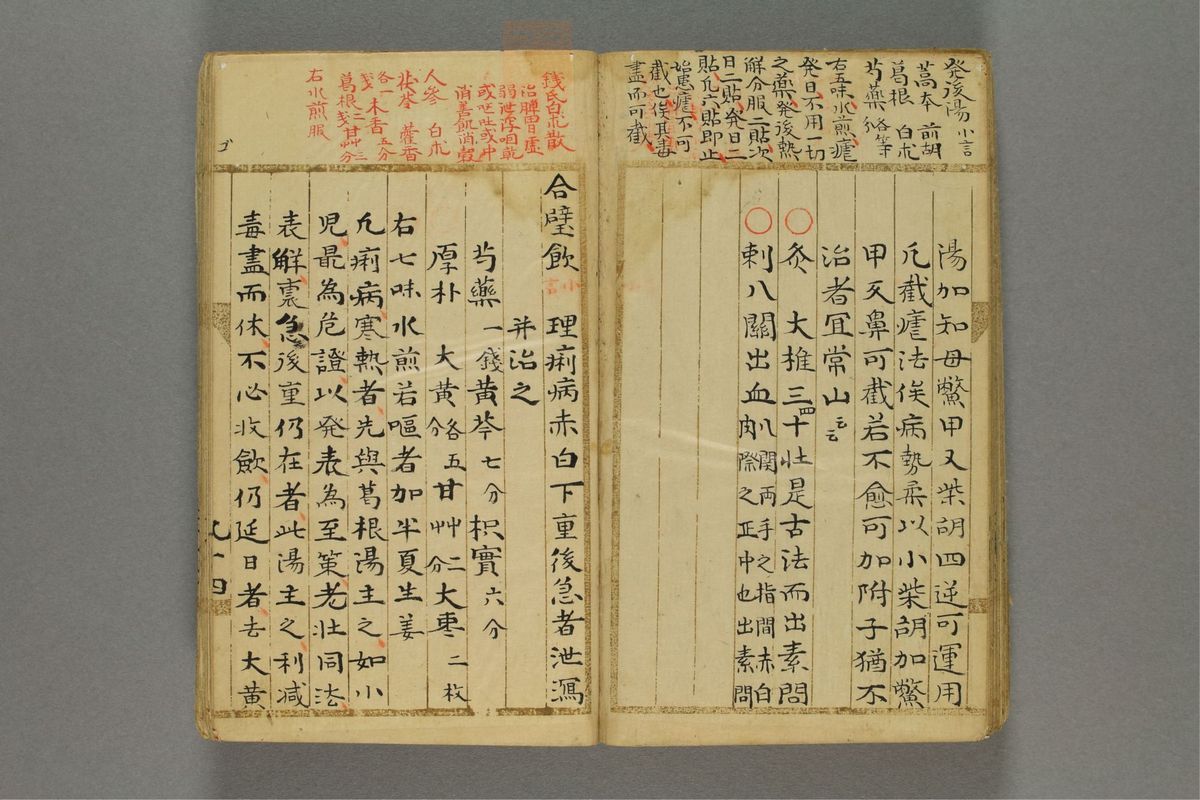 発後湯 小言
藁本 前胡
葛根 白朮
芍薬 各等分
右五味水煎瘧
発日不用一切
之薬発後熱
解分服二貼次
日二貼発日二
貼凡六貼即止
治悪瘧不可
截也俟其毒
盡而可截
湯加知母鱉甲又柴胡四逆可運用
凡截瘧法俟病勢柔以小柴胡加鱉
甲灸鼻可截若不愈可加附子猶不
治者宜常山云云
○灸 大椎三四十壮是古法而出素問
○刺八關出血八関両手之指間赤白肉際之正中也出素問
銭氏白朮散
治脾胃虚
弱泄瀉咽乾
或吐或
消善飢消穀
人参 白朮
茯苓 藿香
各一戔木香五分
葛根二戔甘艸三分
右水煎服
合璧飲 理痢病赤白下重後急者泄瀉
并治之
芍藥一錢黄芩七分枳實六分
厚朴 大黄各五分甘艸二分大棗二枚
右七味水煎若嘔者加半夏生姜
凡痢病寒熱者先與葛根湯主之如小
児最為危證以発表為至策老壮同法
表解裏急後重仍在者此湯主之利減
毒盡而休不必收歛仍延日者去大黄
九十四